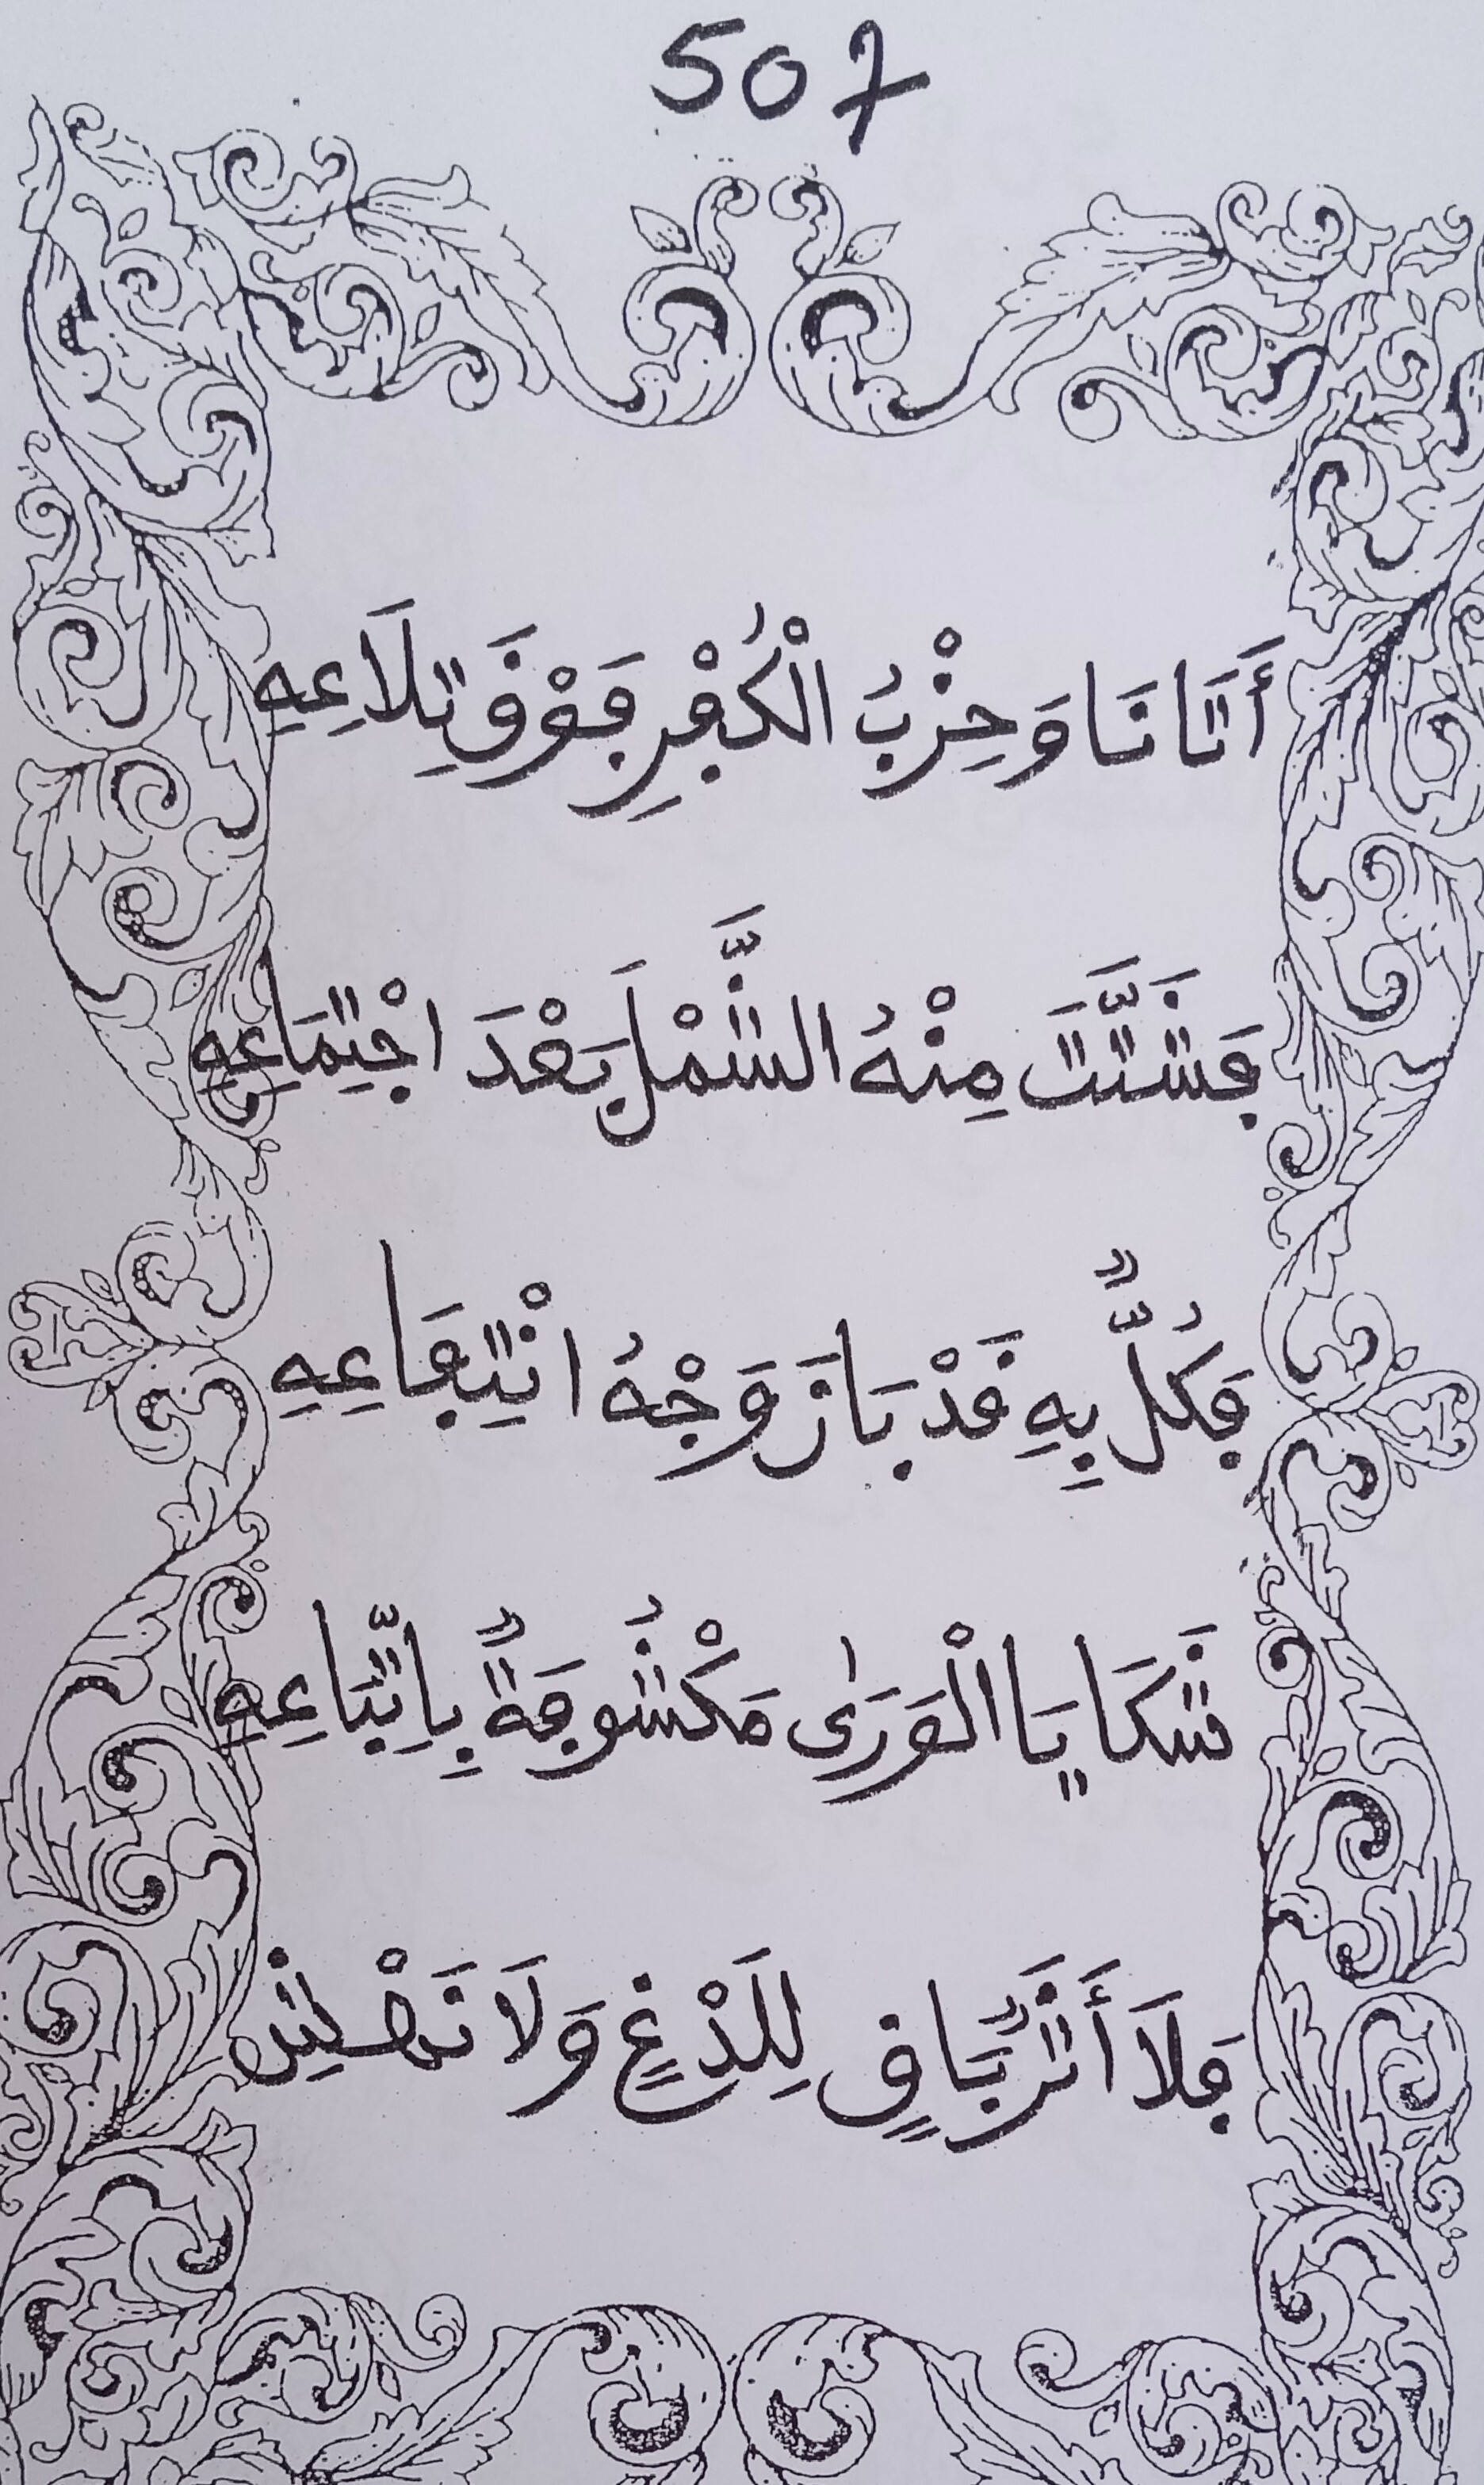 507
أَتَانَا وَحِزْبُ الْكُفْرِ فَوْقَ تِلَاعِهِ
فَشَتَّتَ مِنْهُ الشَّمْلَ بَعْدَ اجْتِمَاعِهِ
فَكُلٌّ بِهِ قَدْ بَانَ وَجْهُ انْتِفَاعِهِ
شَكَايَا الْوَرَىٰ مَكْشُوفَةٌ بِاتِّبَاعِهِ
فَلَا أَثَرٌ بَاقٍ لِلَدْغٍ وَلَا نَهْشِ